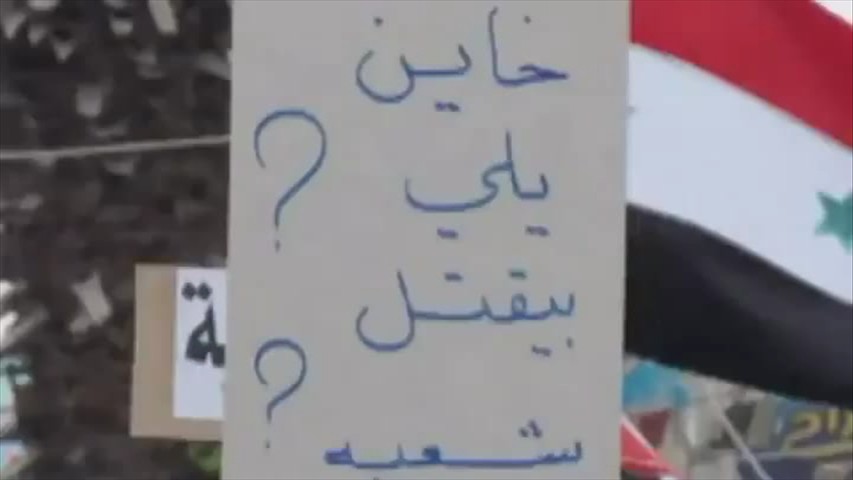 خاين
يلي ?
بيقتل
شعبه ?
ة